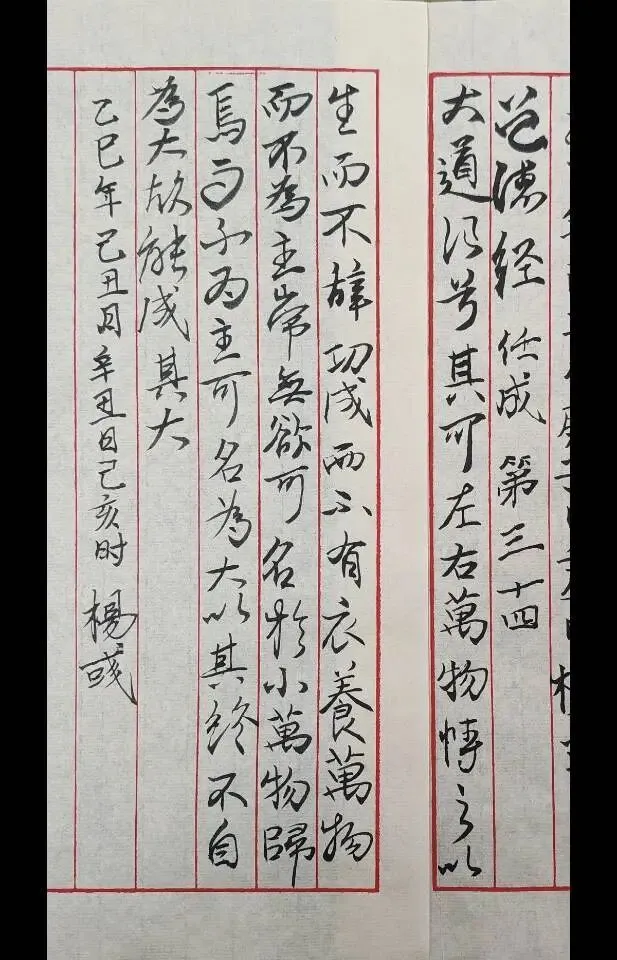 道德经 任成 第三十四
大道氾兮其可左右萬物恃之以
生而不辭功成而不有衣養萬物
而不為主常無欲可名於小萬物歸
焉而不为主可名為大以其終不自
為大故能成其大
乙巳年己丑月辛丑日己亥时 楊彧